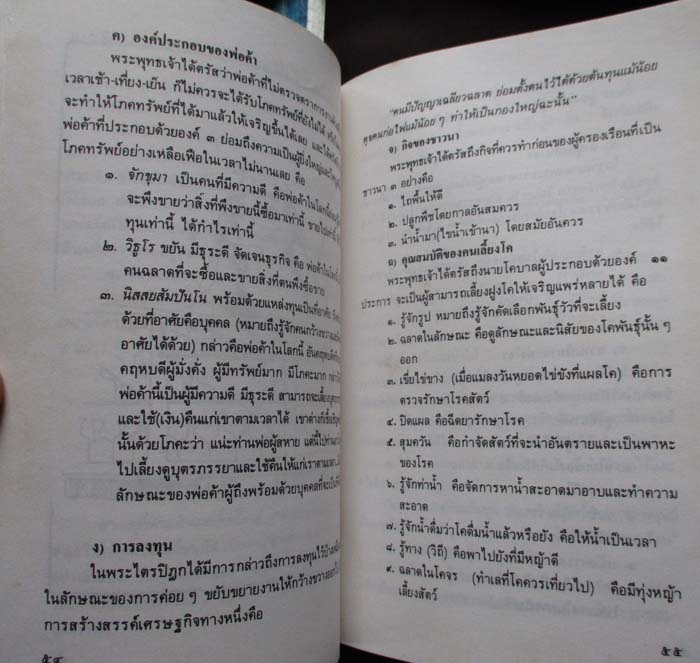 ค) องค์ประกอบของพ่อค้า
พระพุทธเจ้าได้ตรัสว่าพ่อค้าที่ไม่ตรวจตราการงาน
เวลาเช้า-เที่ยง-เย็น ก็ไม่ควรจะได้รับโภคทรัพย์ที่ยังไม่ได้
จะทำให้โภคทรัพย์ที่ได้มาแล้วให้เจริญขึ้นได้เลย
พ่อค้าที่ประกอบด้วยองค์ ๓ ย่อมถึงความเป็นผู้ยิ่งใหญ่
โภคทรัพย์อย่างเหลือเฟือในเวลาไม่นานเลย คือ
๑. จักขุมา เป็นคนที่มีความดี คือพ่อค้าในโลกนี้
จะพึงขายว่าสิ่งที่พึงขายนี้ซื้อมาเท่านี้ ขายไปเท่านี้
ทุนเท่านี้ ได้กำไรเท่านี้
๒. วิธูโร ขยัน มีธุระดี จัดเจนธุรกิจ คือ พ่อค้าในโลก
คนฉลาดที่จะซื้อและขายสิ่งที่ตนพึงซื้อขาย
๓. นิสสยสัมปันโน พร้อมด้วยแหล่งทุนเป็นที่อาศัย
ด้วยที่อาศัยคือบุคคล (หมายถึงรู้จักคนกว้างขวาง
อาศัยได้ด้วย) กล่าวคือพ่อค้าในโลกนี้ อันคฤหบดี
คฤหบดีผู้มั่งคั่ง ผู้มีทรัพย์มาก มีโภคะมาก
พ่อค้านี้เป็นผู้มีความดี มีธุระดี สามารถจะเลี้ยง
และใช้(เงิน)คืนแก่เขาตามเวลาได้ เขาต่างก็
นั้นด้วยโภคะว่า แน่ะท่านพ่อผู้สหาย แต่นี้ไปท่าน
ไปเลี้ยงดูบุตรภรรยาและใช้คืนให้แก่เราตามเวลา
ลักษณะของพ่อค้าผู้ถึงพร้อมด้วยบุคคลที่จะเป็น
ง) การลงทุน
ในพระไตรปิฎกได้มีการกล่าวถึงการลงทุนไว้
ในลักษณะของการค่อย ๆ ขยับขยายงานให้กว้างขวางออกไป
การสร้างสรรค์เศรษฐกิจทางหนึ่งคือ
๕๔
"คนมีปัญญาเฉลียวฉลาด ย่อมตั้งตนไว้ได้ด้วยต้นทุนแม้น้อย
ดุจคนก่อไฟแม้น้อย ๆ ทำให้เป็นกองใหญ่ฉะนั้น"
จ) กิจของชาวนา
พระพุทธเจ้าได้ตรัสถึงกิจที่ควรทำก่อนของผู้ครองเรือนที่เป็น
ชาวนา ๓ อย่างคือ
๑. ไถพื้นให้ดี
๒. ปลูกพืชโดยกาลอันสมควร
๓. นำน้ำมา(ไขน้ำเข้านา) โดยสมัยอันควร
ฉ) คุณสมบัติของคนเลี้ยงโค
พระพุทธเจ้าได้ตรัสถึงนายโคบาลผู้ประกอบด้วยองค์ ๑๑
ประการ จะเป็นผู้สามารถเลี้ยงฝูงโคให้เจริญแพร่หลายได้ คือ
๑. รู้จักรูป หมายถึงรู้จักคัดเลือกพันธุ์วัวที่จะเลี้ยง
๒. ฉลาดในลักษณะ คือดูลักษณะและนิสัยของโคพันธุ์นั้น ๆ
ออก
๓. เขี่ยไข่ขาง (เมื่อแมลงวันหยอดไข่ขังที่แผลโค) คือการ
ตรวจรักษาโรคสัตว์
๔. ปิดแผล คือฉีดยารักษาโรค
๕. สุมควัน คือกำจัดสัตว์ที่จะนำอันตรายและเป็นพาหะ
ของโรค
๖. รู้จักท่าน้ำ คือจัดการหาน้ำสะอาดมาอาบและทำความ
สะอาด
๗. รู้จักน้ำดื่มว่าโคดื่มน้ำแล้วหรือยัง คือให้น้ำเป็นเวลา
๘. รู้ทาง (วิถี) คือพาไปยังที่มีหญ้าดี
๙. ฉลาดในโคจร (ทำเลที่โคควรเที่ยวไป) คือมีทุ่งหญ้า
เลี้ยงสัตว์
๕๕